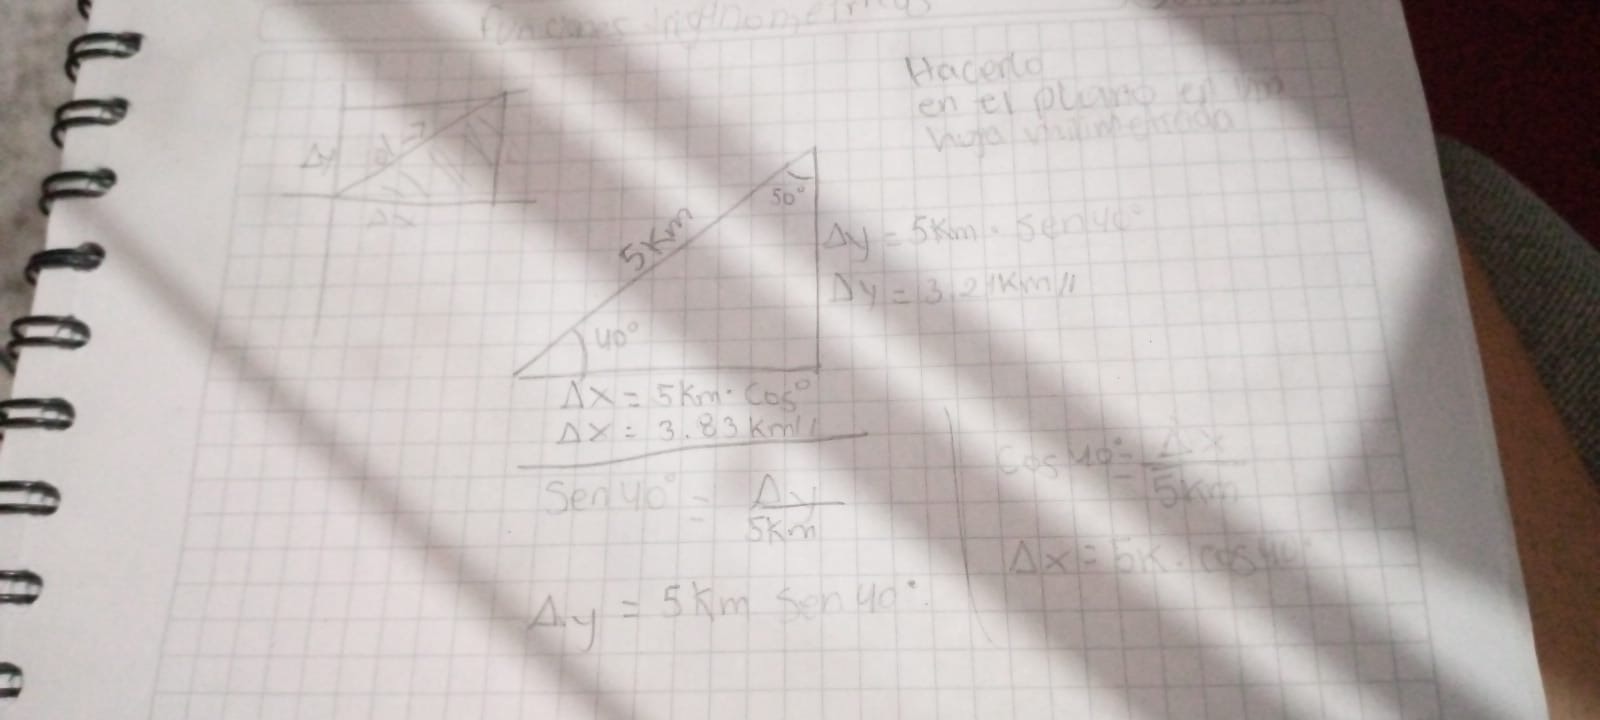 Funciones trigonometricas
Hacerlo
en el plano en una
hoja milimetrada
Δy
d
Δx
5km
50°
40°
Δy = 5km · Sen40°
Δy = 3.21km//
Δx = 5km · Cos°
Δx = 3.83km//
Sen40° = Δy
5km
Δy = 5km Sen40°.
Cos40° = Δx
5km
Δx = 5k · cos40°